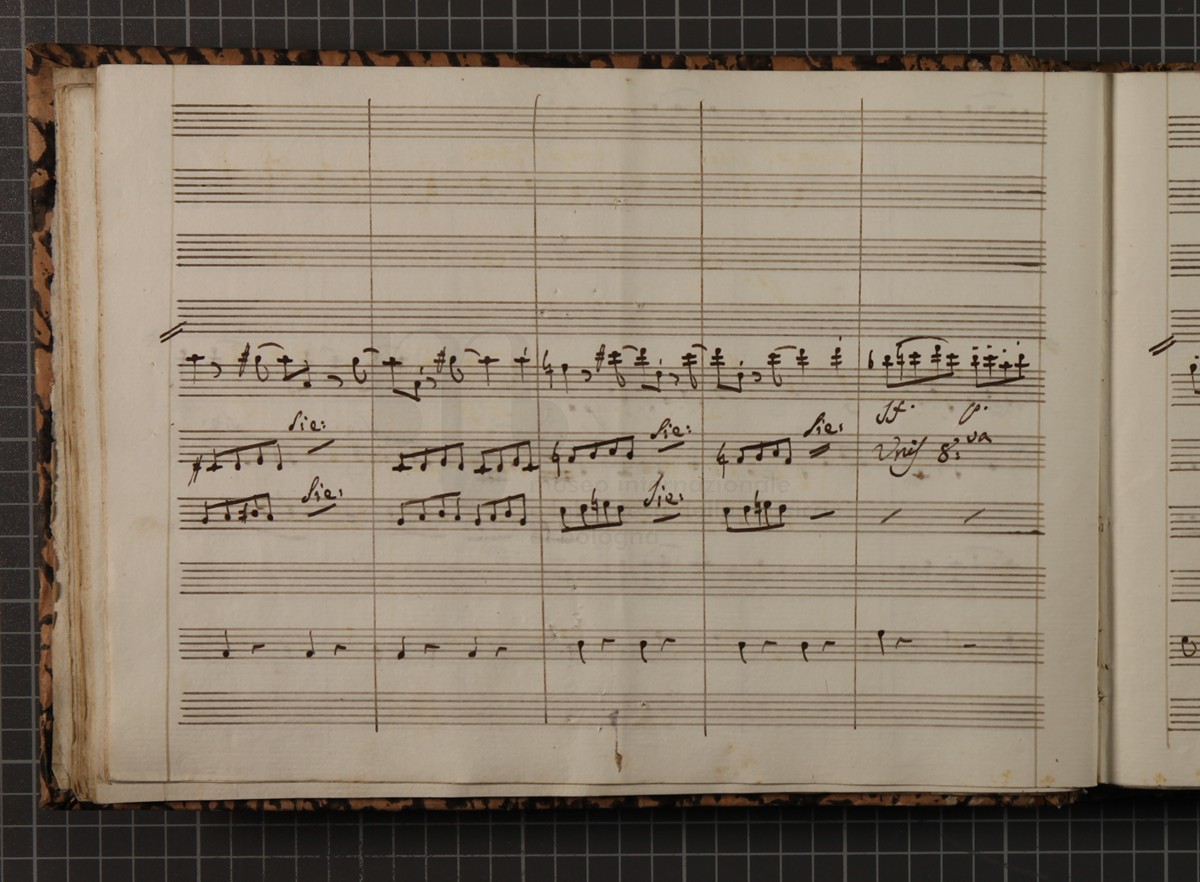 Sie:
Sie:
Sie:
Sf. p.
Unis 8:va
Sie:
Sie:
museo internazionale
di bologna